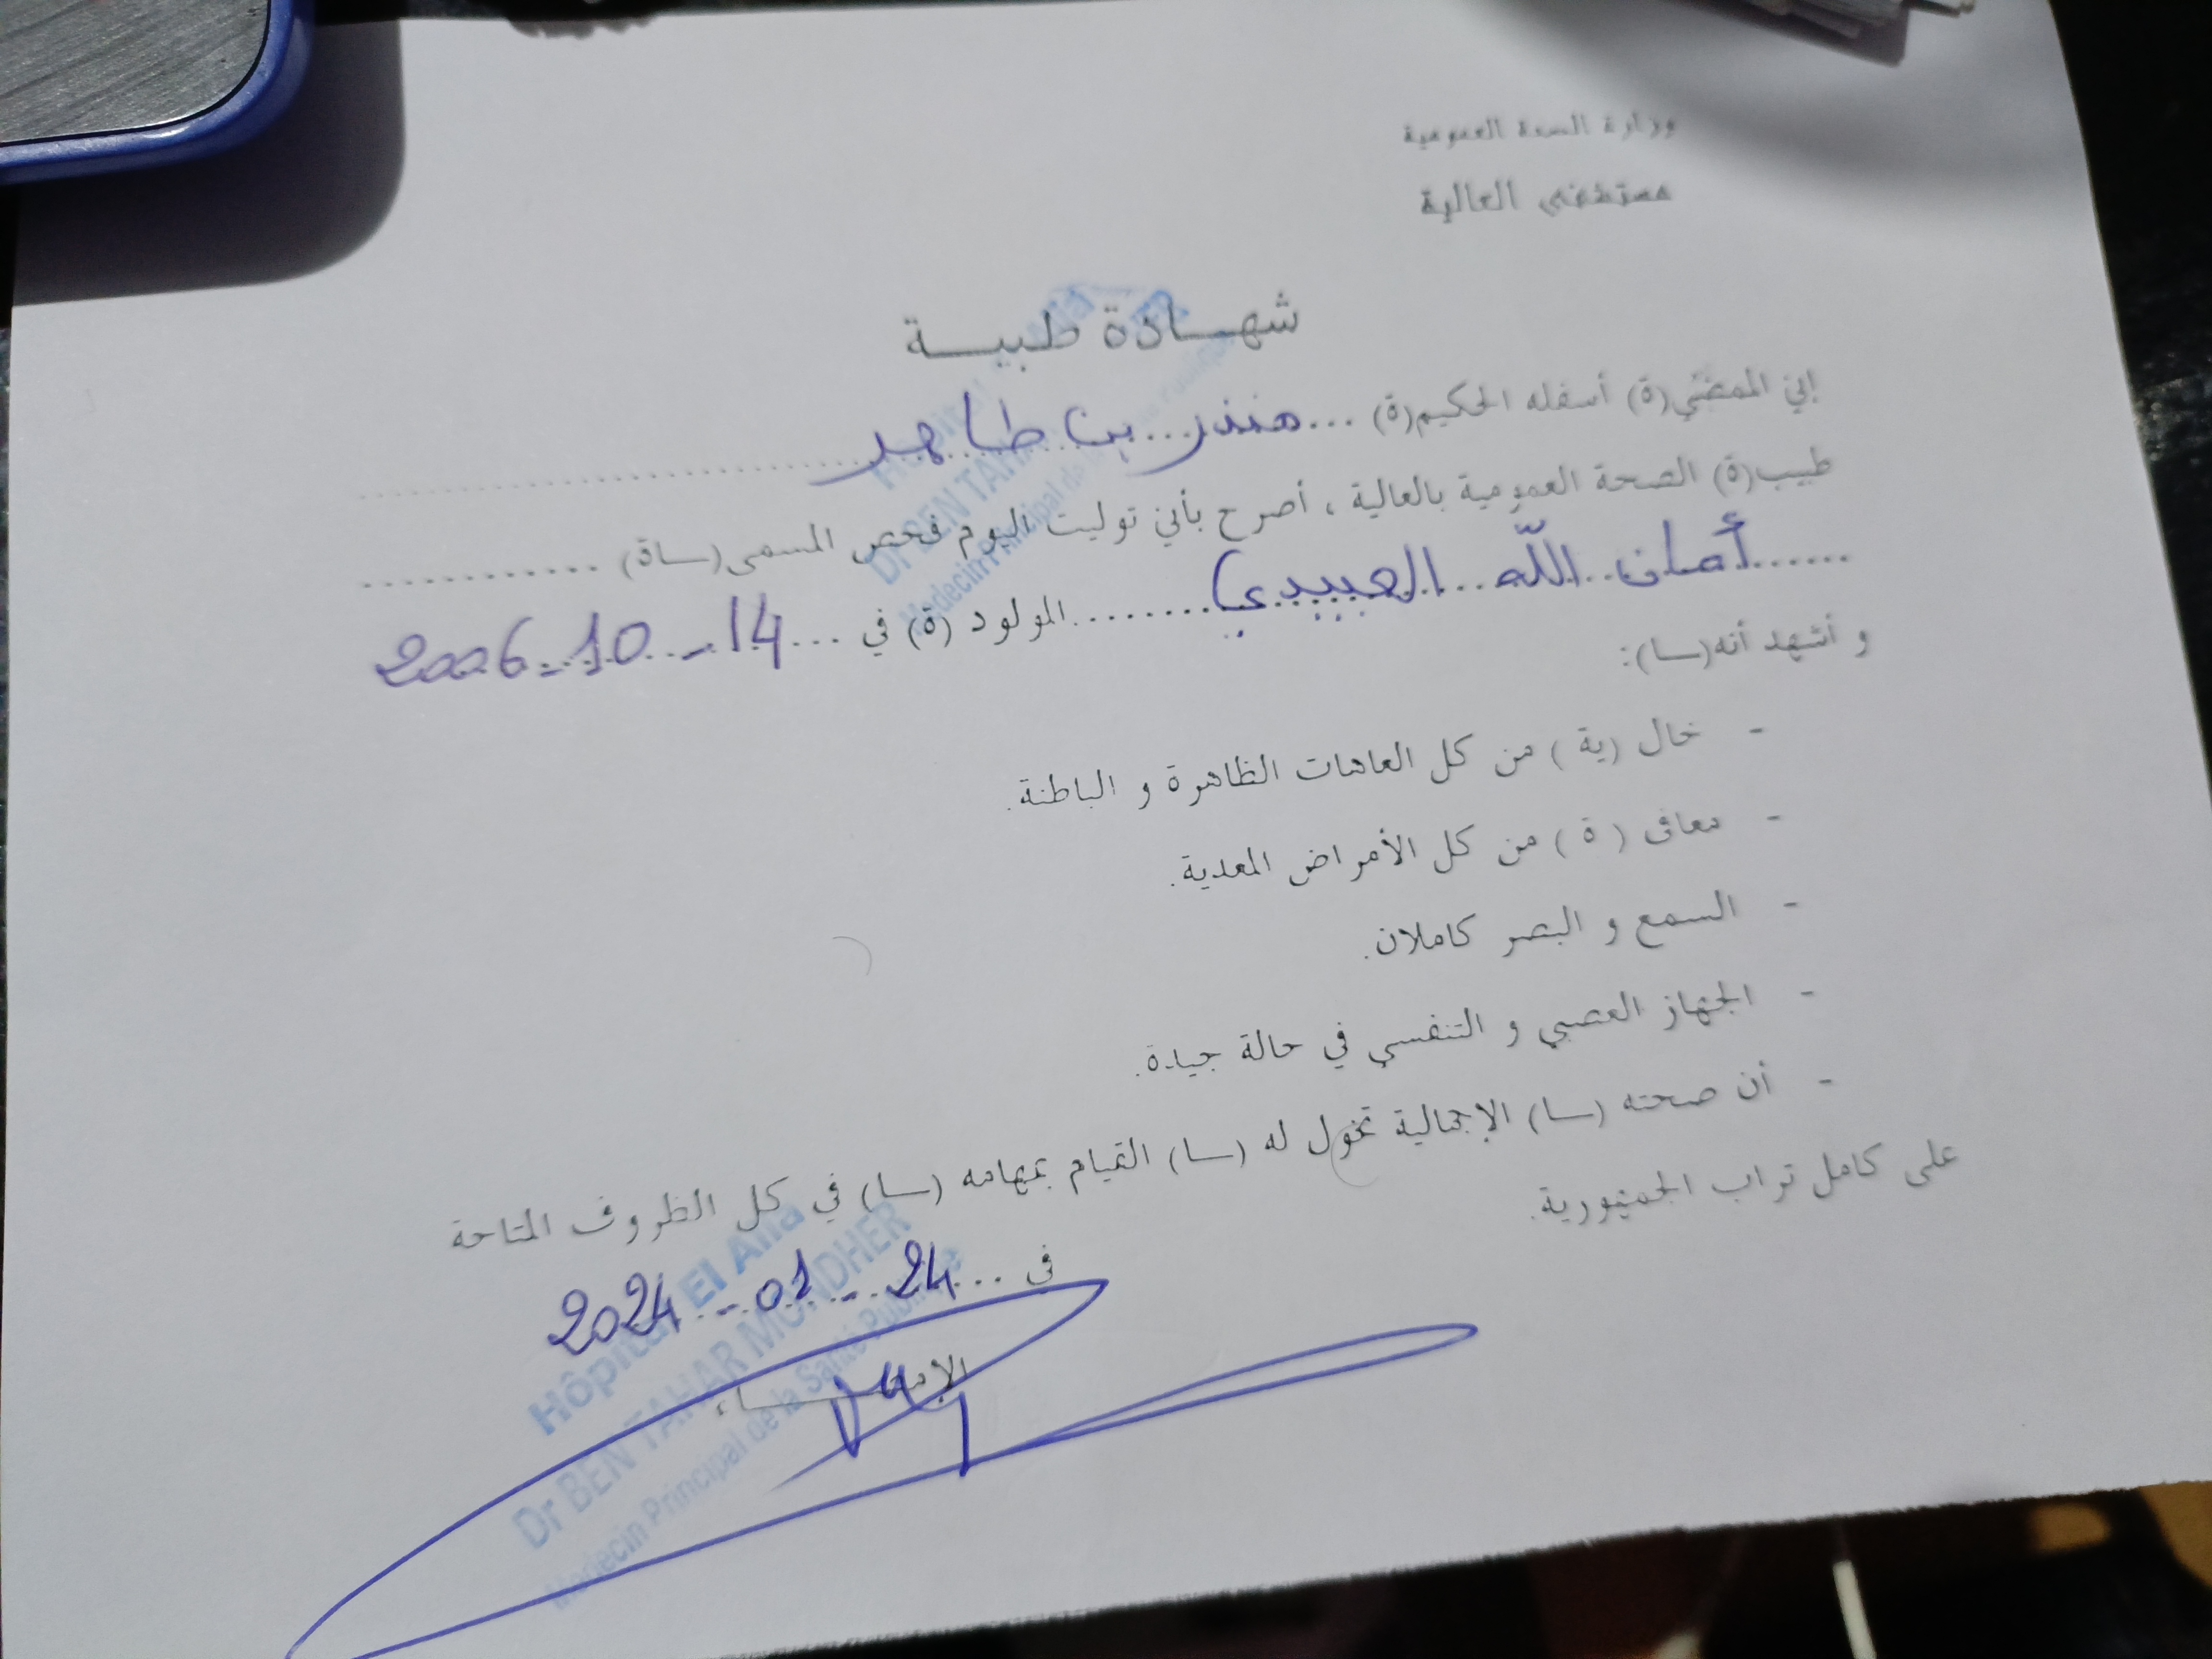 وزارة الصحة العمومية
مستشفى العالية
شهــادة طبيــة
إني الممضي(ة) أسفله الحكيم(ة) ...منذر بن طاهر
طبيب(ة) الصحة العمومية بالعالية ، أصرح بأني توليت اليوم فحص المسمى(ــاة) ............
......أمان اللّه العبيدي........المولود (ة) في ...14 - 10 - 2006
و أشهد أنه(ــا):
- خال (ية ) من كل العاهات الظاهرة و الباطنة.
- معافى ( ة ) من كل الأمراض المعدية.
- السمع و البصر كاملان.
- الجهاز العصبي و التنفسي في حالة جيدة.
- أن صحته (ــا) الإجمالية تخول له (ــا) القيام بمهامه (ــا) في كل الظروف المتاحة
على كامل تراب الجمهورية.
في ...24 - 01 - 2024
الإمضــــاء
Hôpital El Alia
Dr BEN TAHAR MONDHER
Medecin Principal de la Santé Publique